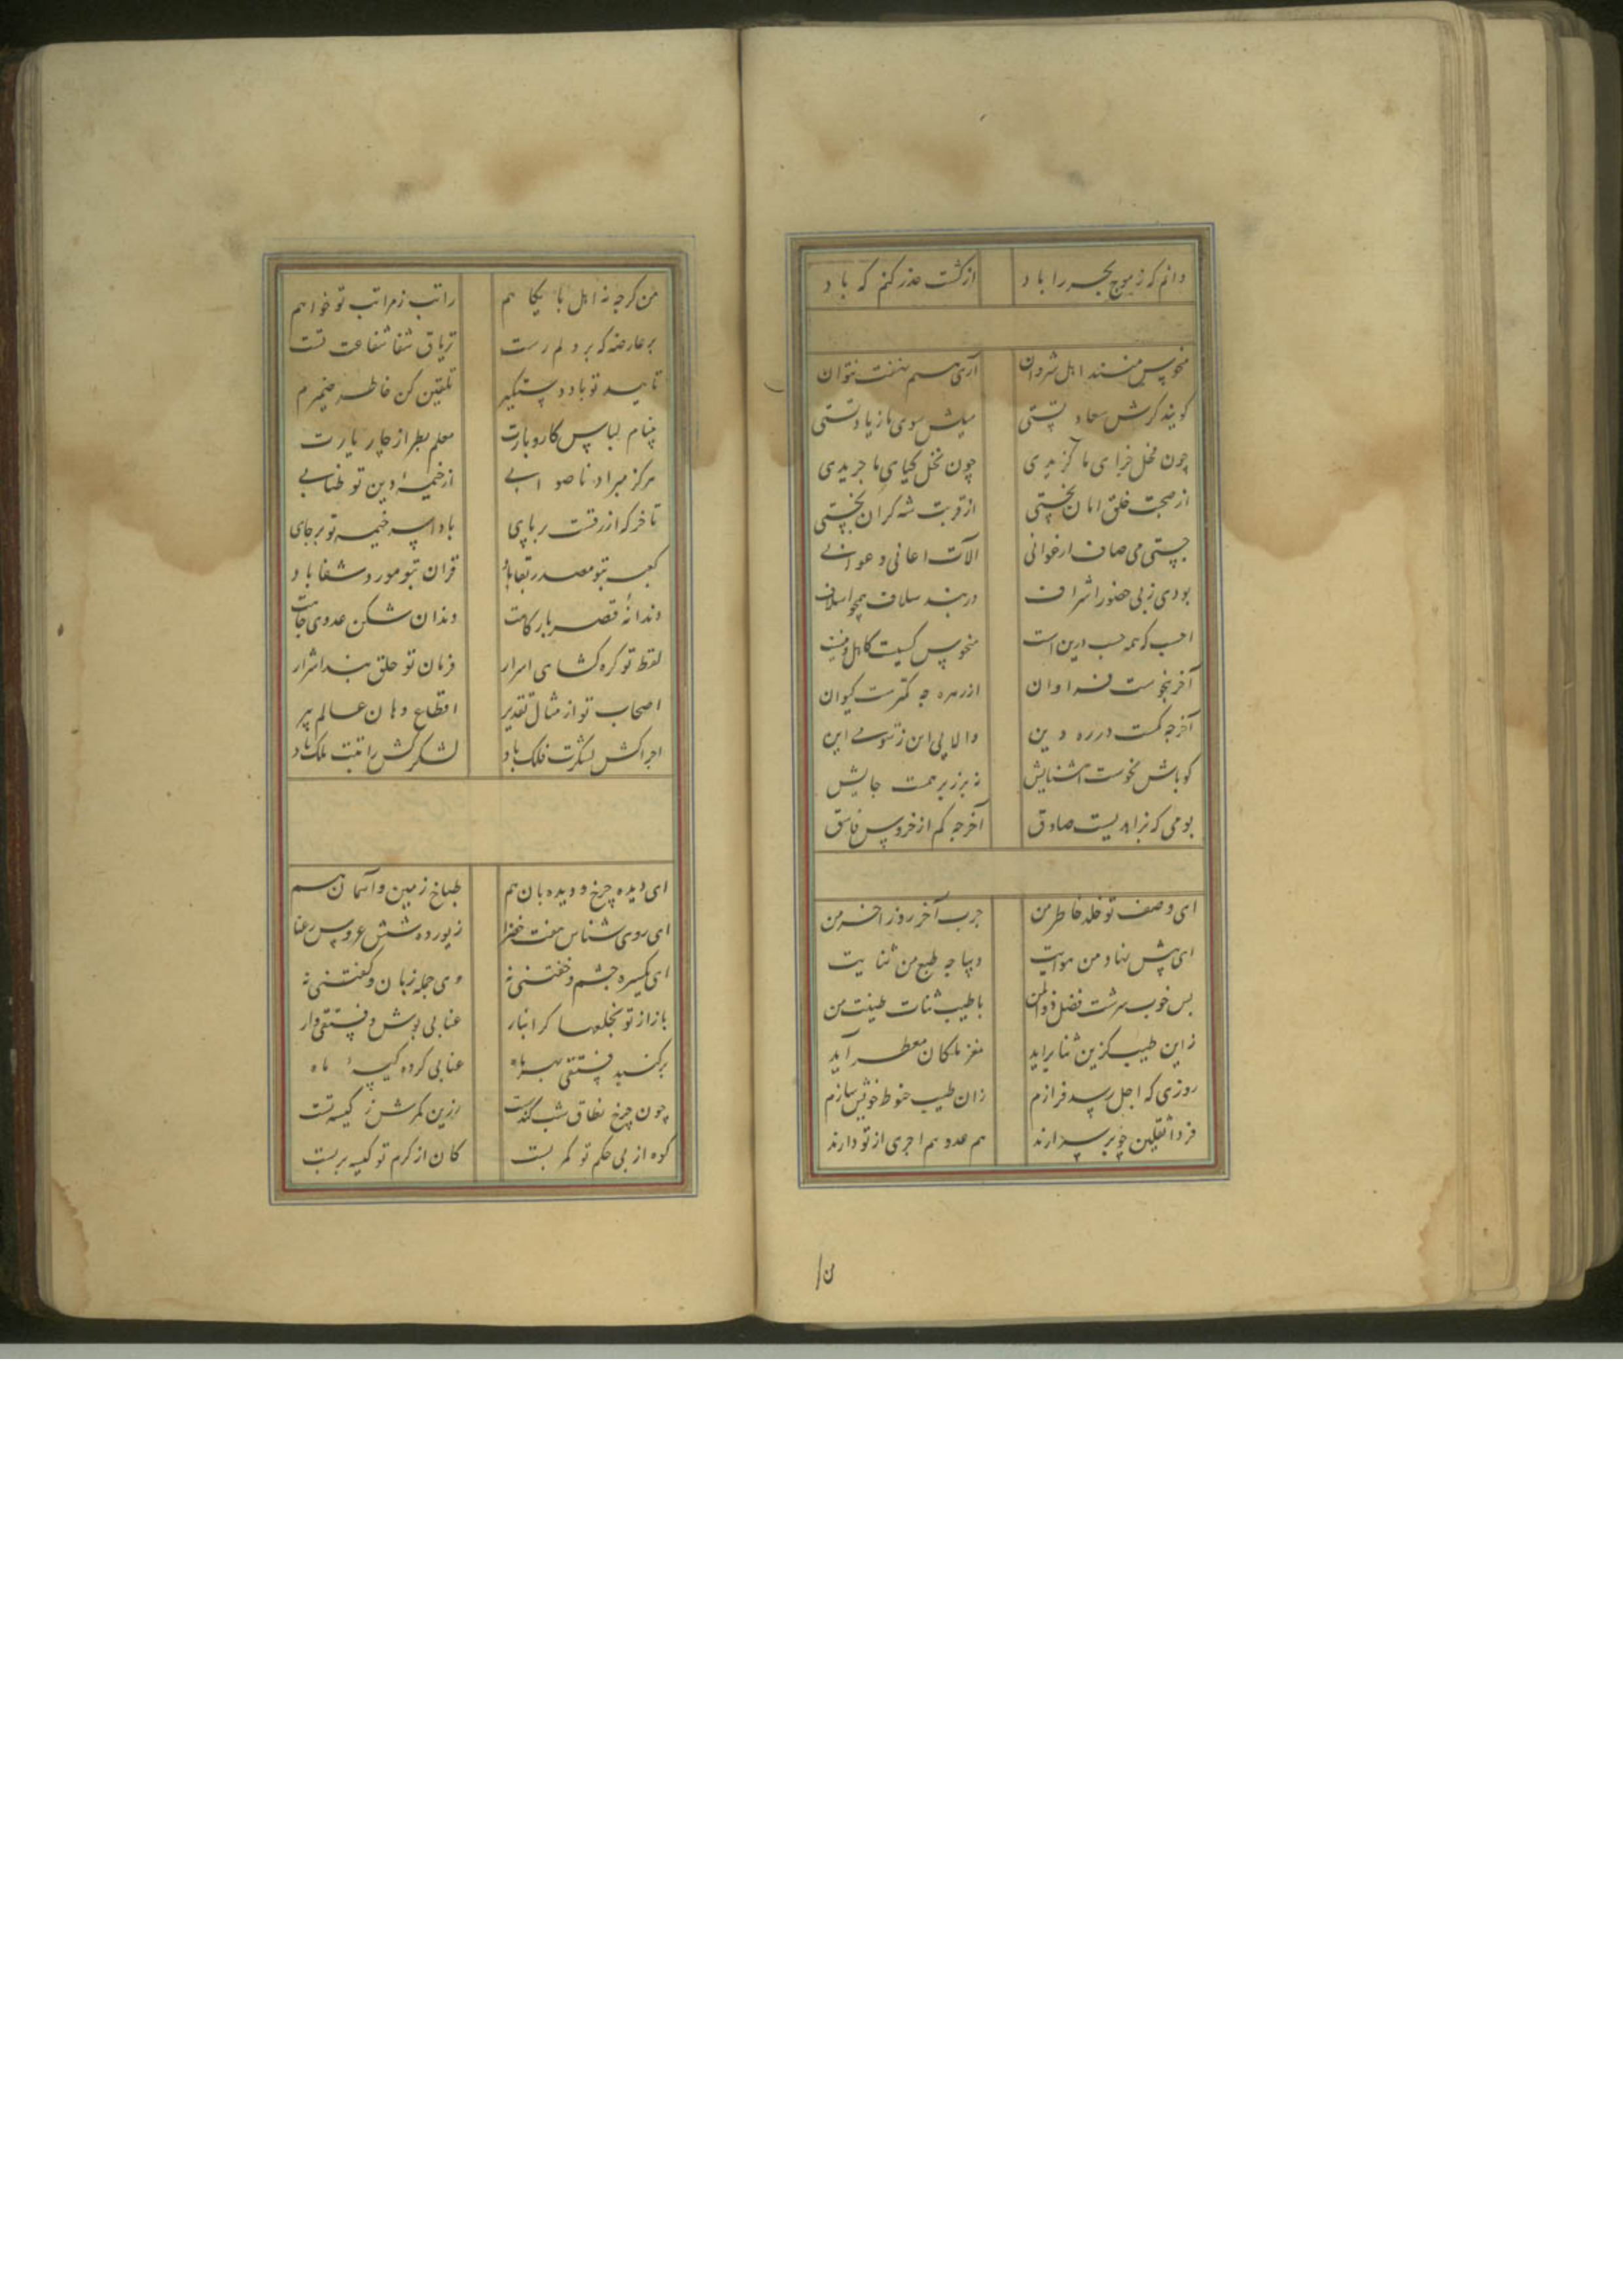 دانم که ز موج بحر را باد از کشت حذر کنم که باد
منحوس منند اهل شروان آری هم نهفت نتوان
کویند کرش سعاد تستی میلش سوی ما زیاد تستی
چون نخل خرای ما کزیدی چون نخل کیای ما چریدی
از صحبت خلق امان نجستی از قربت شه کران نجستی
جستی می صاف ارغوانی آلات اغانی و غوانی
بودی ز پی حضور اشراف دربند سلاف همچو اسلاف
احسب که همه حسب درین است منحوس کسیت کاهل
آخر نجوست فراوان از زهره چه کمترست کیوان
آخر چه کمست در ره دین والا پی این ز این
کو باش نخوست آشنایش نه برزبر همت جایش
بومی که بزاهدیست صادق آخر چه کم از خروس فاسق
ای وصف تو خلد خاطر من چرب آخر روز آخر من
ای پیش نهاد من هوایت دیباچه طبع من ثنایت
بس خوب سرشت فضل ذوالمن با طیب ثنات طینت من
زاین طیب کزین ثنا برآید مغز ملکان معطر آید
روزی که اجل رسد فرازم زان طیب حنوط خویش سازم
فردا ثقلین چو بر سر آرند هم عدو هم اجری از تو دارند
من کرچه نه اهل بایکاهم راتب ز مراتب تو خواهم
بر عارضه که بر دلم رست تریاق شفا شفاعت تست
تایید تو باد دستکیرم تلقین کن خاطر ضمیرم
پنام لباس کار و بارت معلم بطراز چار یارت
هرکز مبراد ناصوابی از خیمهٔ دین تو طنابی
تا خرکه ازرقست بر پای بادا سر خیمه تو بر جای
کعبه بتو مصدر بقا باد قران بتو مورد شفا باد
دندانهٔ قصر بارکاهت دندان شکن عدوی جاهت
لفظ تو کره کشای اسرار فرمان تو حلق بند اشرار
اصحاب تو از مثال تقدیر اقطاع دهان عالم پیر
اجراکش لشکرت فلک باد لشکرکش راتبت ملک باد
ای دیده چرخ و دیده بان هم طباخ زمین و آسمان هم
ای روی شناس هفت خضرا زیورده شش عروس رعنا
ای یکسره چشم و خفتنی نه وی جمله زبان و کفتنی نه
باز از تو نخلها کرانبار عنابی پوش و فستقی دار
بر کنبد فستقی عنابی کرده کیسهٔ ماه
چون چرخ نطاق شب زرین کمرش ز کیسه تست
کوه از پی حکم تو کمر بست کان از کرم تو کیسه بر بست